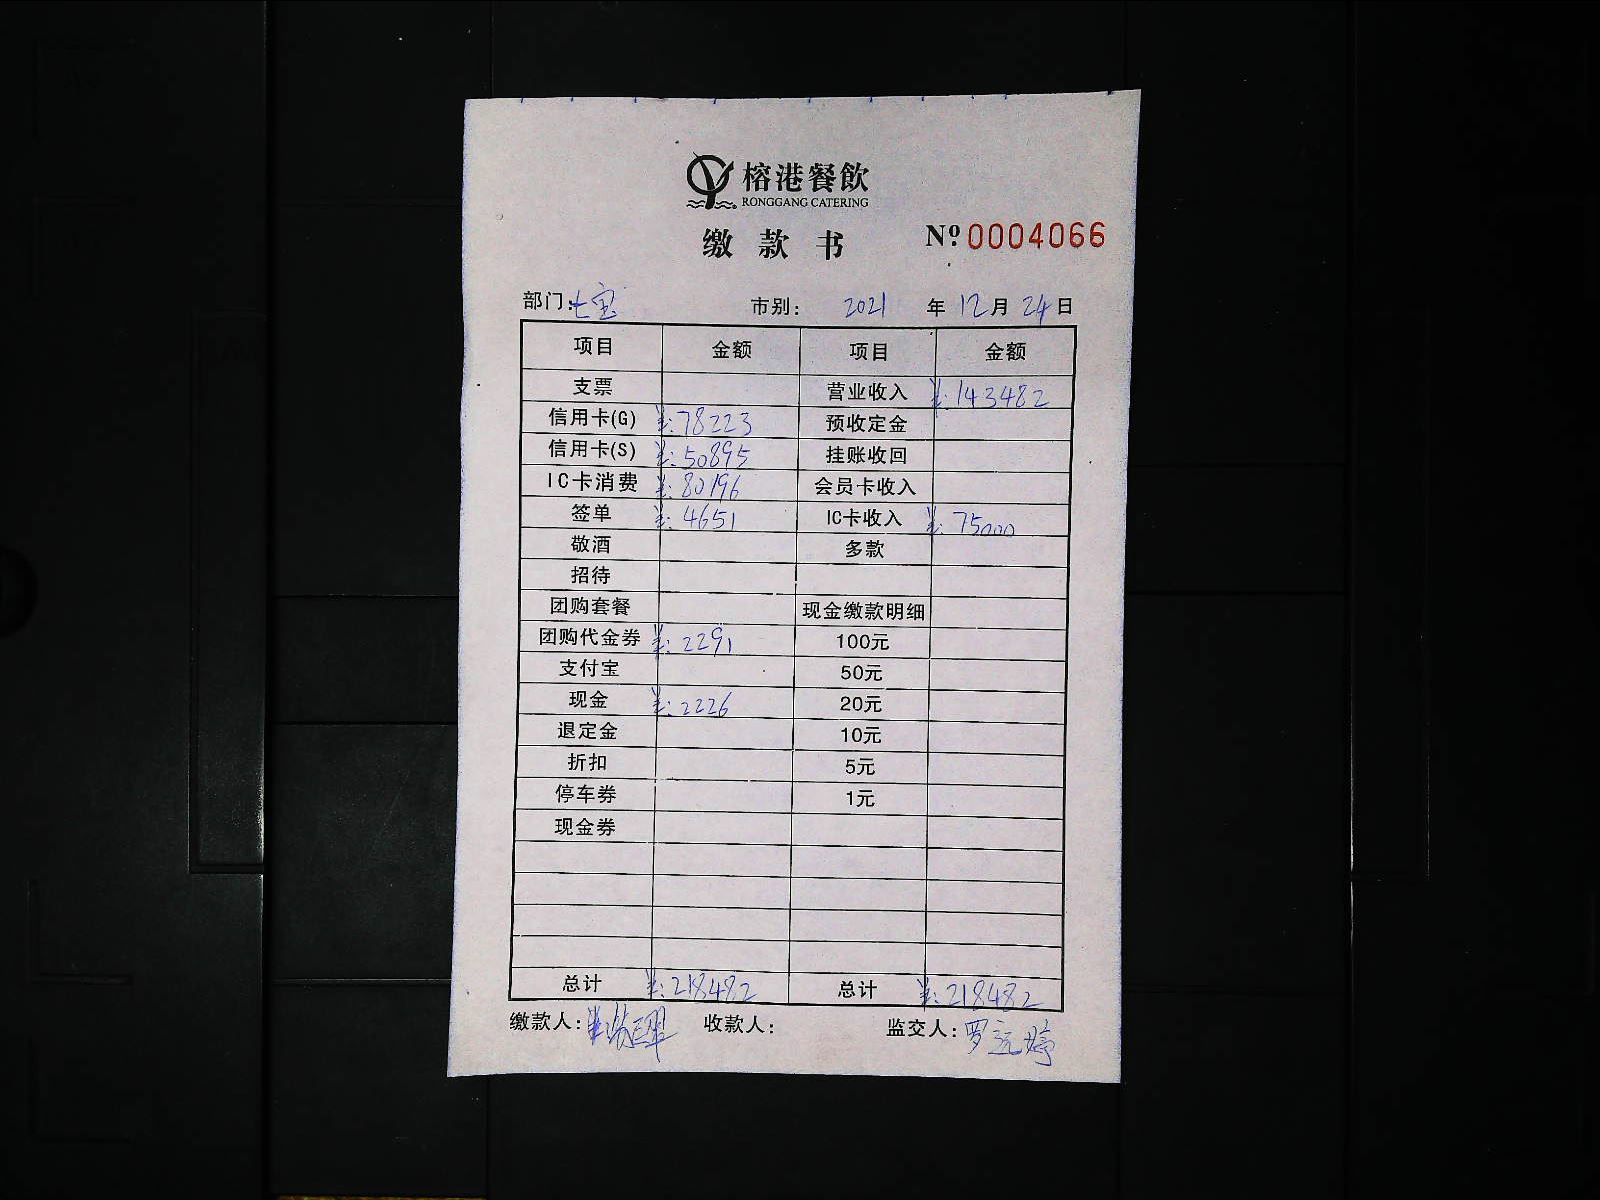 榕港餐飲
RONGGANG CATERING
缴款书 Nº 0004066
部门:七宝 市别: 2021 年 12 月 24 日
项目 金额 项目 金额
支票 营业收入 ¥:143482
信用卡(G) ¥:78223 预收定金
信用卡(S) ¥:50895 挂账收回
IC卡消费 ¥:80196 会员卡收入
签单 ¥:4651 IC卡收入 ¥:75000
敬酒 多款
招待
团购套餐 现金缴款明细
团购代金券 ¥:2291 100元
支付宝 50元
现金 ¥:2226 20元
退定金 10元
折扣 5元
停车券 1元
现金券
总计 ¥:218482 总计 ¥:218482
缴款人: 收款人: 监交人:罗婷